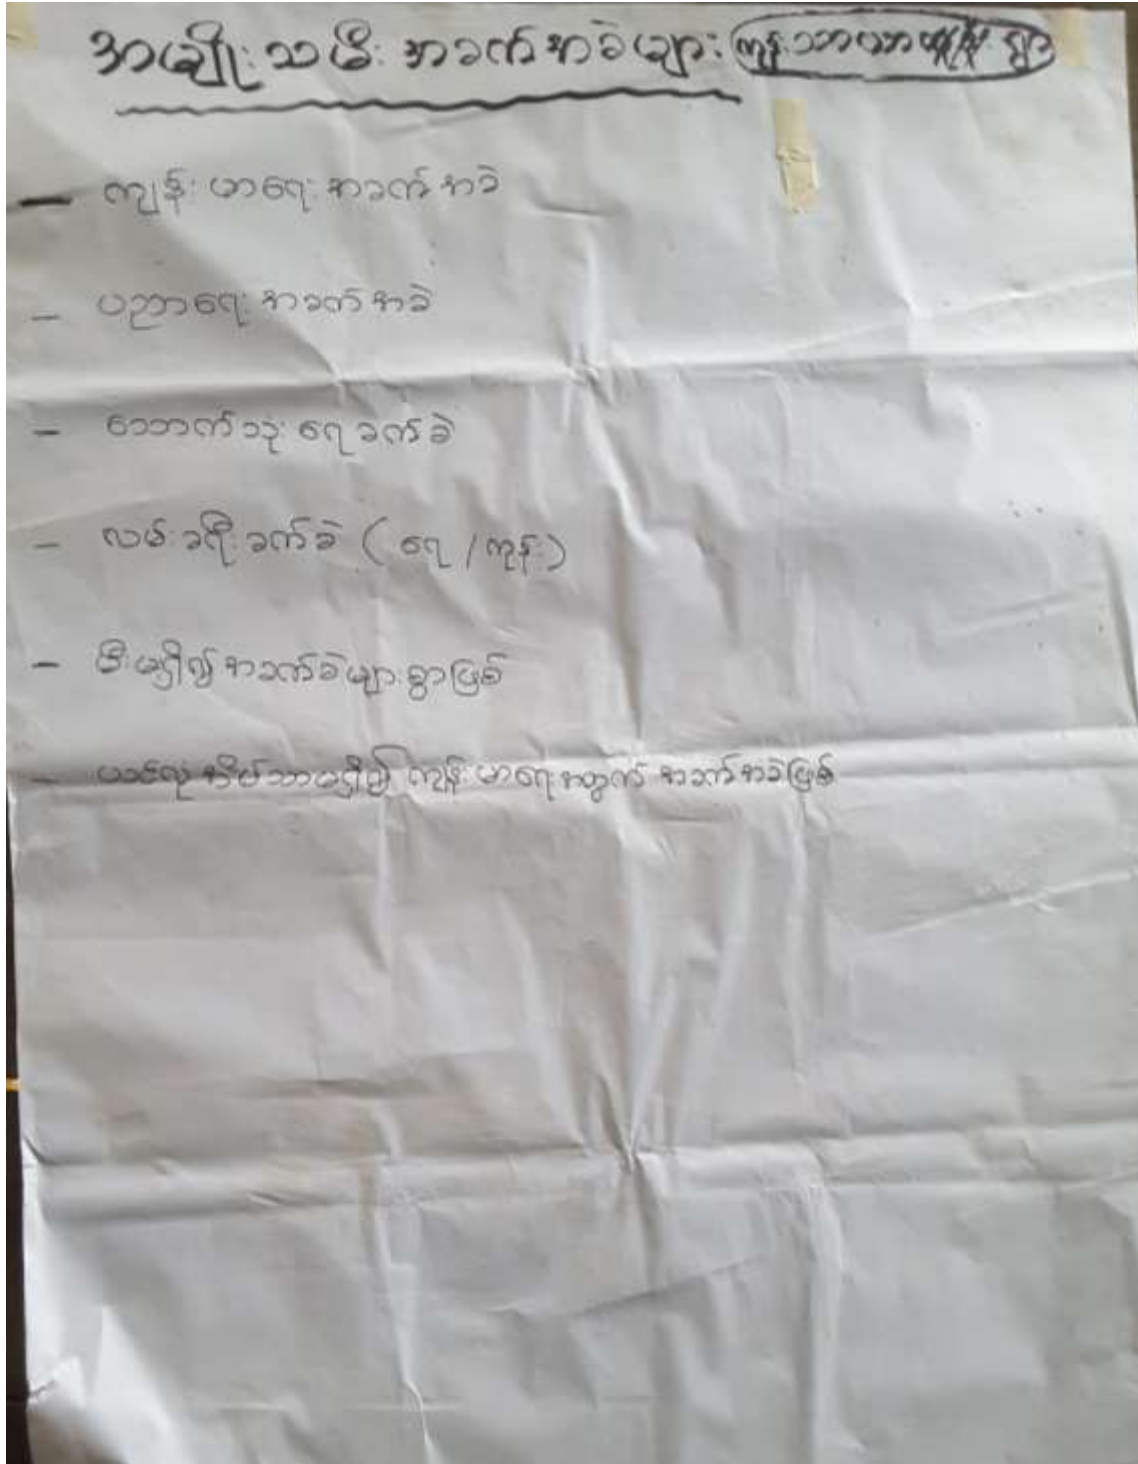 အမျိုးသမီး အခက်အခဲများ ကုန်းသာယာ ရွာ
— ကျန်းမာရေး အခက်အခဲ
— ပညာရေး အခက်အခဲ
— သောက်သုံးရေ ခက်ခဲ
— လမ်းခရီး ခက်ခဲ ( ရေ / ကုန်း )
— မီးမရှိ၍ အခက်ခဲများစွာဖြစ်
— ယင်လုံအိမ်သာမရှိ၍ ကျန်းမာရေးအတွက် အခက်အခဲဖြစ်